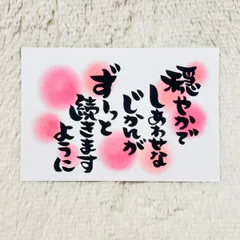 穏やかで
しあわせな
じかんが
ずーっと
続きます
ように